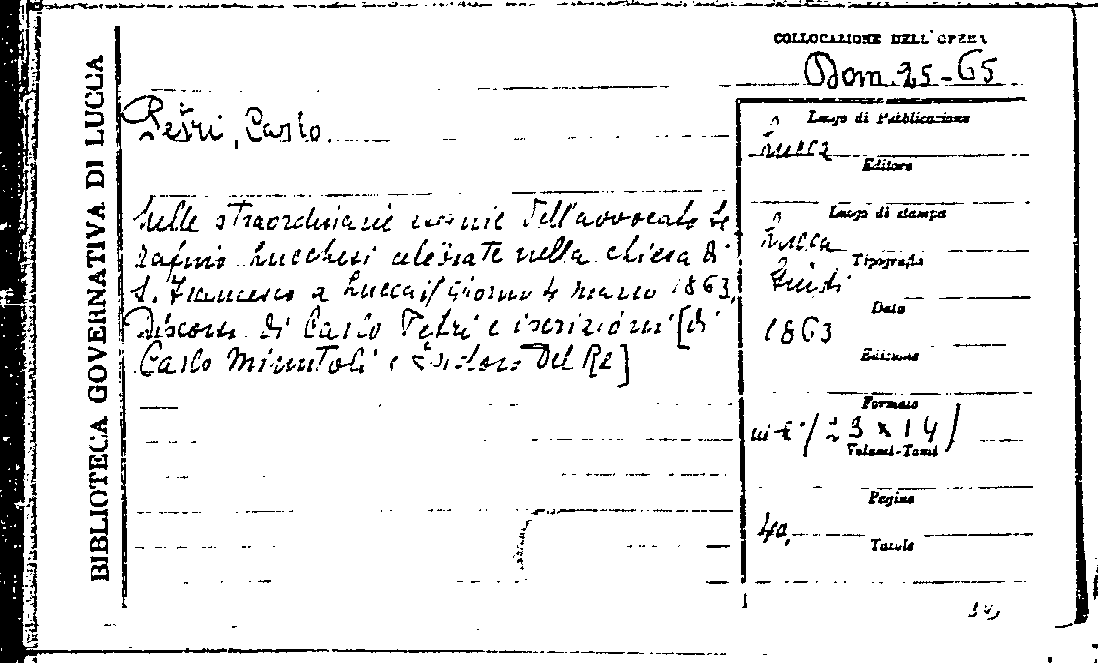 BIBLIOTECA GOVERNATIVA DI LUCCA
COLLOCAZIONE DELL'OPERA
Dom. 25-65
Petri, Carlo
Luogo di Pubblicazione
Lucca
Editore
Nelle straordinarie esequie dell'avvocato Se-
rafino Lucchesi celebrate nella chiesa di
S. Francesco a Lucca il giorno 4 marzo 1863.
Discorso di Carlo Petri e iscrizioni [di
Carlo Minutoli e Isidoro Del Re]
Luogo di stampa
Lucca
Tipografia
Giusti
Data
1863
Edizione
Formato
in-8° (23 x 14)
Volumi-Tomi
Pagine
40.
Tavole